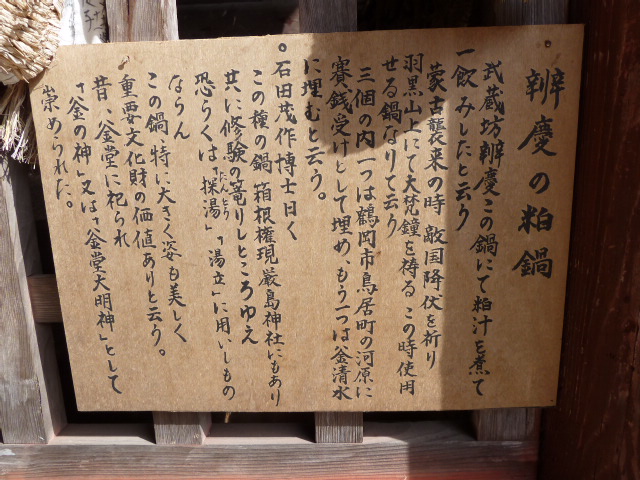 辨慶の粕鍋
武蔵坊辨慶この鍋にて粕汁を煮て
一飲みしたと云う
蒙古襲来の時 敵国降伏を祈り
羽黒山上にて大梵鐘を鋳る この時使用
せる鍋なりて云う
三個の内一つは鶴岡市鳥居町の河原に
賽銭受けとして埋め、もう一つは釜清水
に埋むと云う。
。石田茂作博士曰く
この種の鍋 箱根権現 厳島神社にもあり
共に修験の篭りしところゆえ
恐らくは「探湯」「湯立」に用いしもの
ならん
この鍋、特に大きく姿も美しく
重要文化財の価値ありと云う。
昔、釜堂に祀られ
「釜の神」又は「釜堂大明神」として
崇められた。